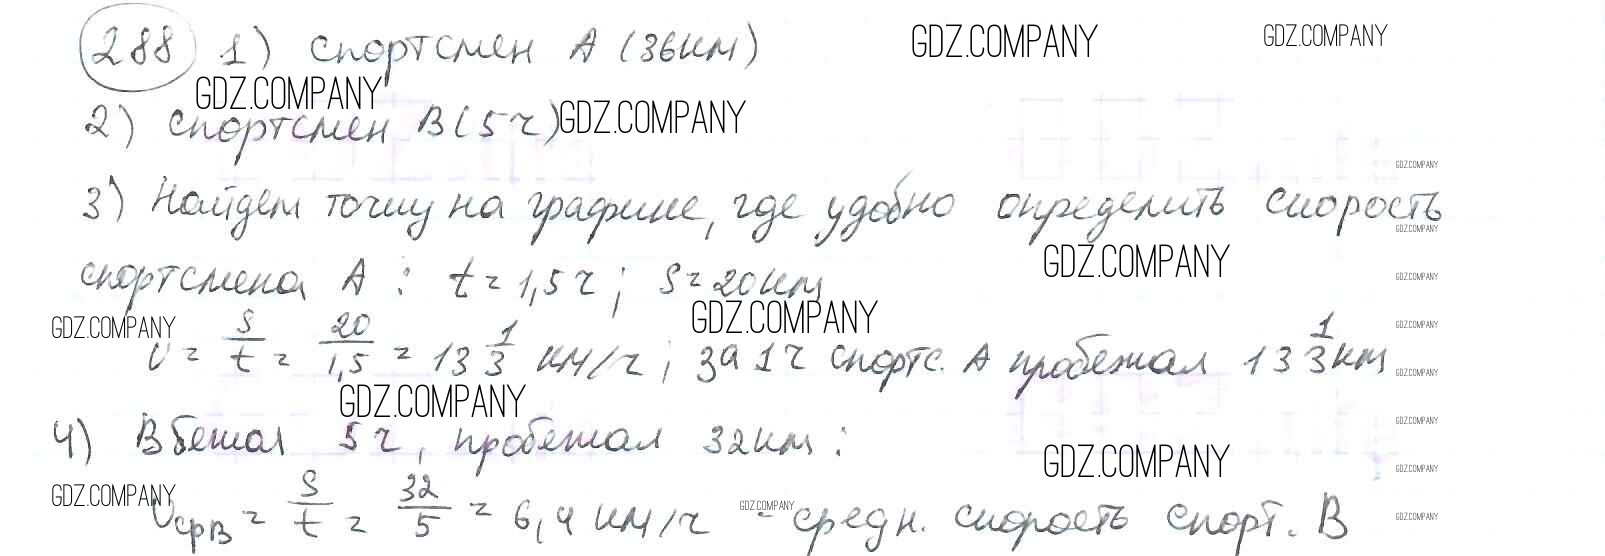 288 1) спортсмен А (36км) GDZ.COMPANY GDZ.COMPANY
GDZ.COMPANY
2) спортсмен В (5 ч) GDZ.COMPANY
GDZ.COMPANY
3) Найдем точку на графике, где удобно определить скорость
GDZ.COMPANY
спортсмена А : t = 1,5 ч ; S = 20 км GDZ.COMPANY GDZ.COMPANY
GDZ.COMPANY GDZ.COMPANY GDZ.COMPANY
v = S/t = 20/1,5 = 13 1/3 км/ч ; за 1 ч спортс. А пробежал 13 1/3 км GDZ.COMPANY
GDZ.COMPANY GDZ.COMPANY
4) В бежал 5 ч, пробежал 32 км :
GDZ.COMPANY GDZ.COMPANY
GDZ.COMPANY GDZ.COMPANY
vсрВ = S/t = 32/5 = 6,4 км/ч - средн. скорость спорт. В GDZ.COMPANY